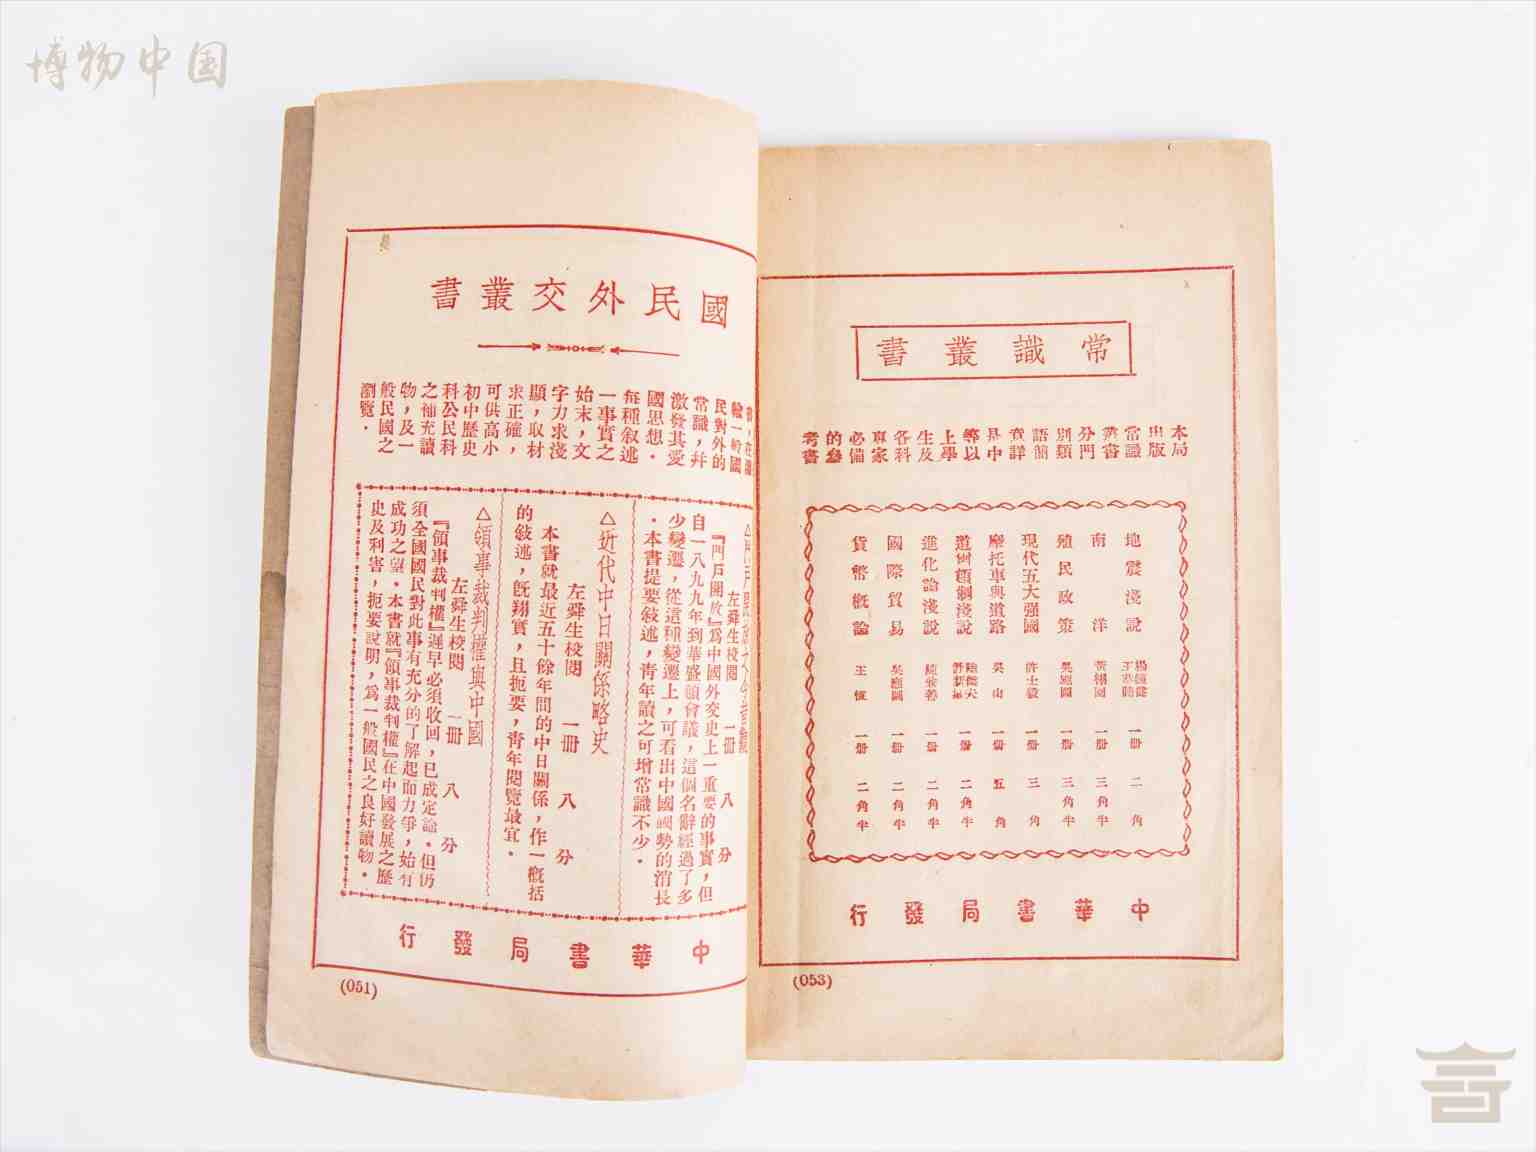 博物中国
常識叢書
本局
出版
常識
叢書
分門
別類
語簡
意詳
是中
等以
上學
生及
各科
專家
必備
的參
考書
地震淺說 一册 二角
南洋 黃栩園 一册 三角半
殖民政策 吳應圖 一册 三角半
現代五大强國 許士毅 一册 三角
摩托車與道路 吳山 一册 五角
道爾頓制淺說 一册 二角半
進化論淺說 一册 二角半
國際貿易 吳應圖 一册 二角半
貨幣概論 王恆 一册 二角半
中華書局發行
(053)
國民外交叢書
民對外的
常識，并
激發其愛
國思想．
每種叙述
一事實之
始末，文
字力求淺
顯，取材
求正確，
可供高小
初中歷史
科公民科
之補充讀
物，及一
般民國之
瀏覽．
左舜生校閱 一册 八分
『門戶開放』爲中國外交史上一重要的事實，但
自一八九九年到華盛頓會議，這個名辭經過了多
少變遷，從這種變遷上，可看出中國國勢的消長
．本書提要敍述，靑年讀之可增常識不少．
△近代中日關係略史
左舜生校閱 一册 八分
本書就最近五十餘年間的中日關係，作一概括
的敍述，旣翔實，且扼要，靑年閱覽最宜．
△領事裁判權與中國
左舜生校閱 一册 八分
『領事裁判權』遲早必須收回，已成定論．但仍
須全國國民對此事有充分的了解起而力爭，始有
成功之望．本書就『領事裁判權』在中國發展之歷
史及利害，扼要說明，爲一般國民之良好讀物．
中華書局發行
(051)